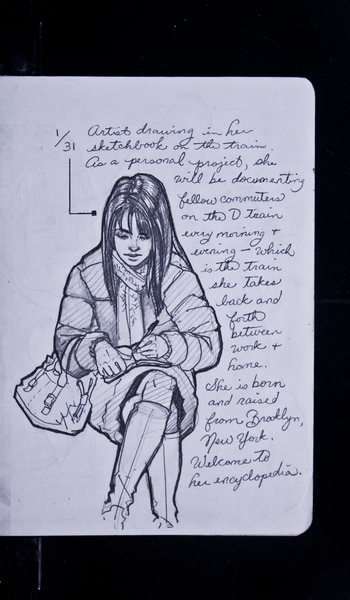 1/31
Artist drawing in her
sketchbook on the train.
As a personal project, she
will be documenting
fellow commuters
on the D train
every morning +
evening – which
is the train
she takes
back and
forth
between
work +
home.
She is born
and raised
from Brooklyn,
New York.
Welcome to
her encyclopedia.